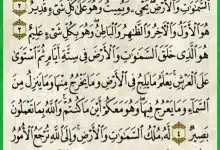 السَّمَٰوَٰتِ وَالْأَرْضِ يُحْيِۦ وَيُمِيتُ وَهُوَ عَلَىٰ كُلِّ شَىْءٍ قَدِيرٌ ٢
هُوَ الْأَوَّلُ وَالْءَاخِرُ وَالظَّٰهِرُ وَالْبَاطِنُ وَهُوَ بِكُلِّ شَىْءٍ عَلِيمٌ ٣
هُوَ الَّذِى خَلَقَ السَّمَٰوَٰتِ وَالْأَرْضَ فِى سِتَّةِ أَيَّامٍ ثُمَّ اسْتَوَىٰ
عَلَى الْعَرْشِ يَعْلَمُ مَا يَلِجُ فِى الْأَرْضِ وَمَا يَخْرُجُ مِنْهَا وَمَا يَنزِلُ مِنَ
السَّمَآءِ وَمَا يَعْرُجُ فِيهَا وَهُوَ مَعَكُمْ أَيْنَ مَا كُنتُمْ وَاللَّهُ بِمَا تَعْمَلُونَ
بَصِيرٌ ٤ لَّهُۥ مُلْكُ السَّمَٰوَٰتِ وَالْأَرْضِ وَإِلَى اللَّهِ تُرْجَعُ الْأُمُورُ